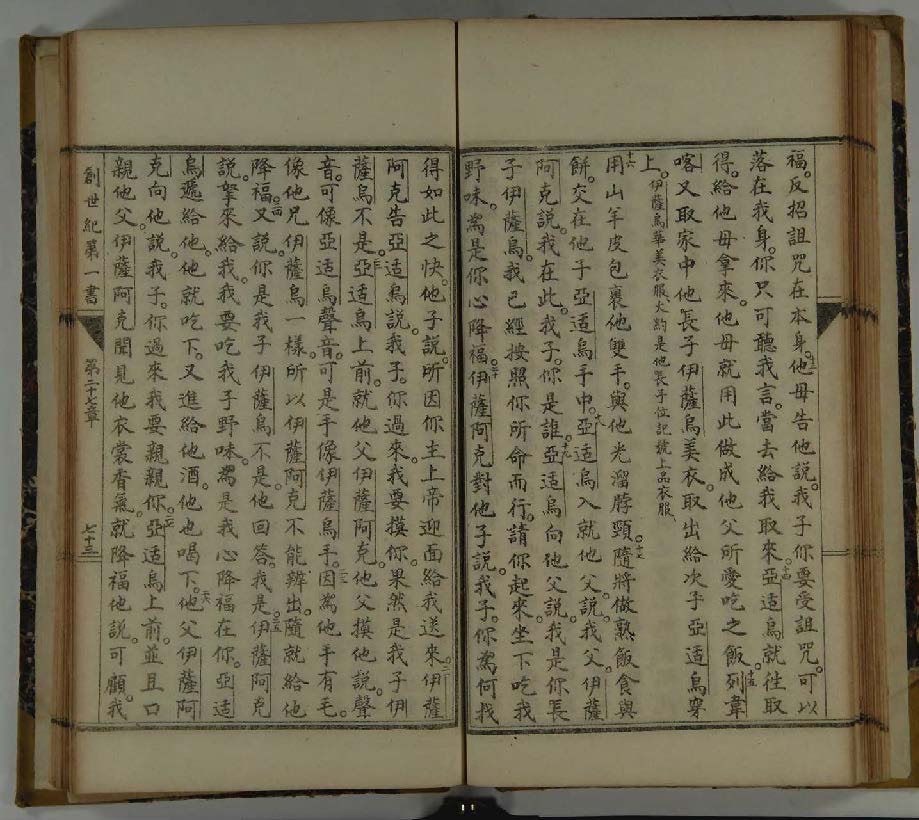 福。反招詛咒在本身。十三他母告他說。我子你要受詛咒。可以
落在我身。你只可聽我言。當去給我取來。十四亞适烏就徃取
得。給他母拿來。他母就用此做成他父所愛吃之飯。十五列韋
喀又取家中他長子伊薩烏美衣取出給次子亞适烏穿
上。伊薩烏華美衣服大約是他長子位記號上品衣服
十六用山羊皮包裹他雙手。與他光溜脖頸。十七隨將做熟飯食與
餅。交在他子亞适烏手中。十八亞适烏入就他父。說。我父。伊薩
阿克說。我在此。我子。你是誰。十九亞适烏向他父說。我是你長
子伊薩烏。我已經按照你所命而行。請你起來。坐下吃我
野味。爲是你心降福。二十伊薩阿克對他子說。我子。你爲何找
得如此之快。他子說。所因你主上帝迎面給我送來。二一伊薩
阿克告亞适烏說。我子。你過來。我要摸你。果然是我子伊
薩烏不是。二二亞适烏上前。就他父伊薩阿克。他父摸他說。聲
音。可像亞适烏聲音。可是手像伊薩烏手。二三因爲他手有毛。
像他兄伊薩烏一樣。所以伊薩阿克不能辨出。隨就給他
降福。二四又說。你是我子伊薩烏不是。他回答。我是。二五伊薩阿克
說。拏來給我。我要吃我子野味。爲是我心降福在你。亞适
烏遞給他。他就吃下。又進給他酒。他也喝下。二六他父伊薩阿
克向他說。我子。你過來我要親親你。二七亞适烏上前。並且口
親他父。伊薩阿克聞見他衣裳香氣。就降福他說。可顧。我
創世紀第一書
第二十七章
七十三